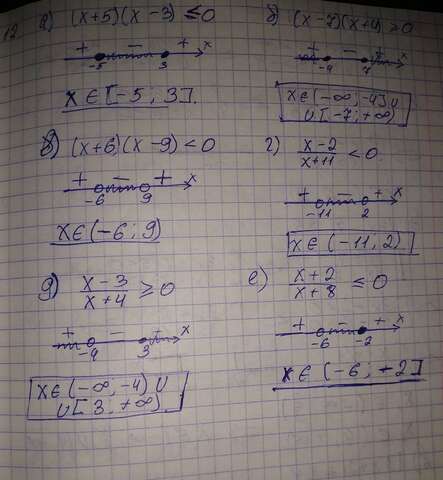 12 a) (x+5)(x-3) ≤ 0
+ - + x
-5 3
x∈[-5; 3].
б) (x-7)(x+4) ≥ 0
+ - + x
-4 7
x∈(-∞; -4] ∪
∪ [-7; +∞)
в) (x+6)(x-9) < 0
+ - + x
-6 9
x∈(-6; 9)
г) x-2 / x+11 < 0
+ - + x
-11 2
x∈(-11; 2)
д) x-3 / x+4 ≥ 0
+ - + x
-4 3
x∈(-∞, -4) ∪
∪ [3; +∞)
е) x+2 / x+8 ≤ 0
+ - + x
-6 -2
x∈(-6; -2]